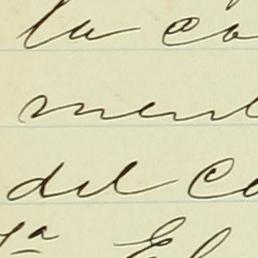 la co
ment
del Co
1ª El